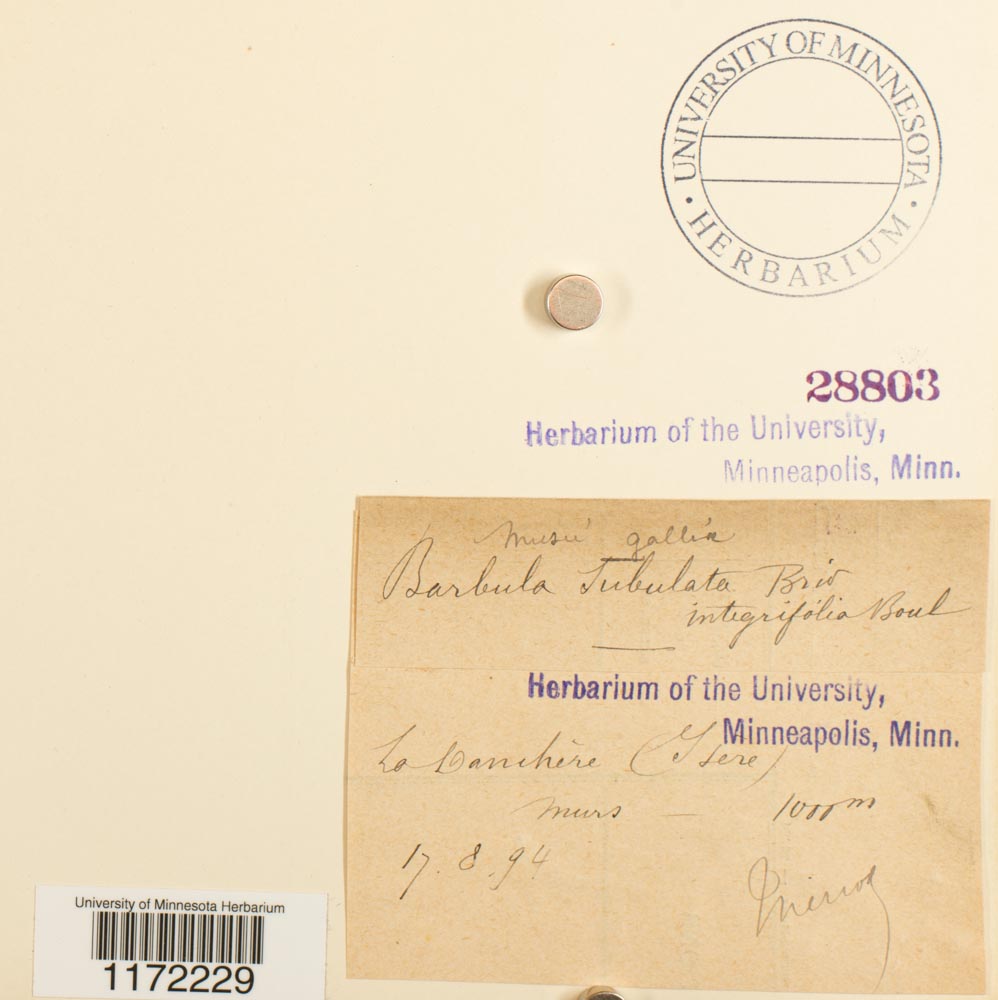 UNIVERSITY OF MINNESOTA
• HERBARIUM •
28803
Herbarium of the University,
Minneapolis, Minn.
Musci galliæ
Barbula Subulata Brid
integrifolia Boul
Herbarium of the University,
Minneapolis, Minn.
La (Isere)
murs — 1000 m
17. 8. 94
University of Minnesota Herbarium
1172229